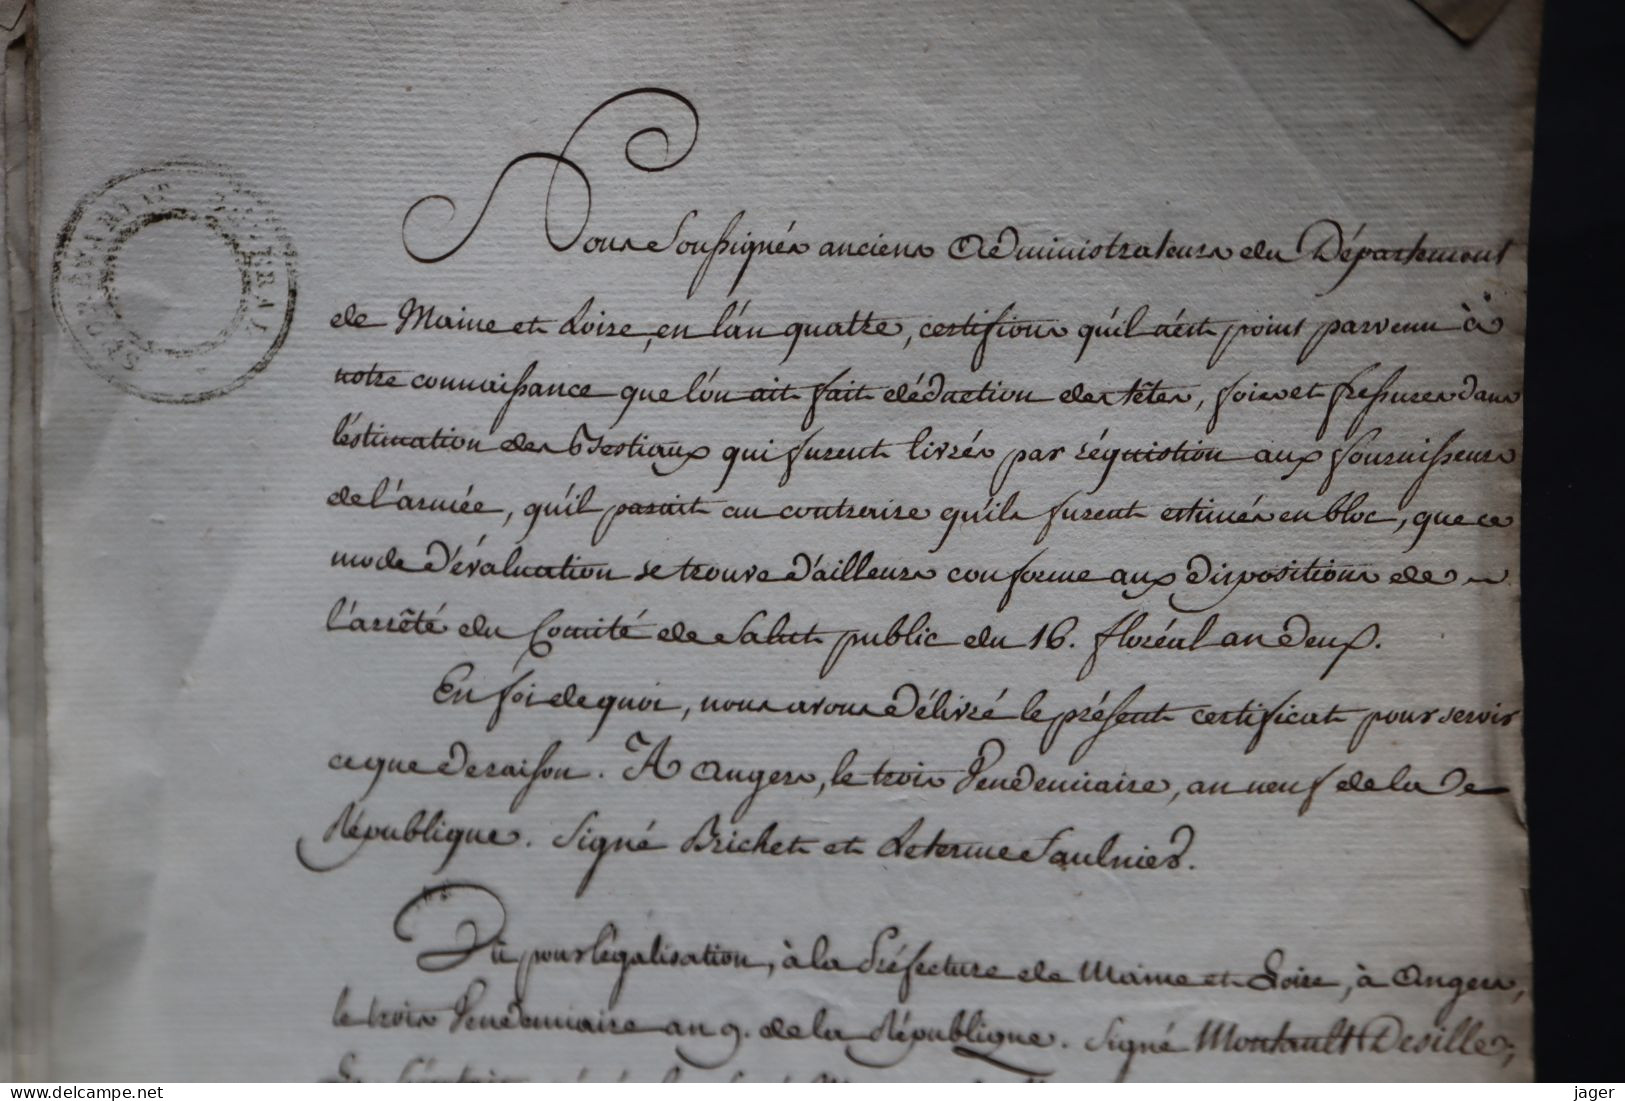 SECRÉTARIAT GÉNÉRAL
Nous Soussignés anciens Administrateurs du Département
de Maine et Loire, en l'an quatre, certifions qu'il n'est point parvenu à
notre connaissance que l'on ait fait déduction des têtes, foies et fressures dans
l'estimation des Bestiaux qui furent livrés par réquistion aux fournisseurs
de l'armée, qu'il parait au contraire qu'ils furent estimés en bloc, que ce
mode d'évaluation se trouve d'ailleurs conforme aux dispositions de
l'arrêté du Comité de Salut public du 16. floréal an deux.
En foi de quoi, nous avons délivré le présent certificat pour servir
ce que de raison. A Angers, le trois Vendemiaire, an neuf de la
République. Signé Brichet et Leterme Saulnier.
Vû pour légalisation, à la Préfecture de Maine et Loire, à Angers,
le trois Vendemiaire an 9. de la République. Signé Montault Desilles,
delcampe.net
jager